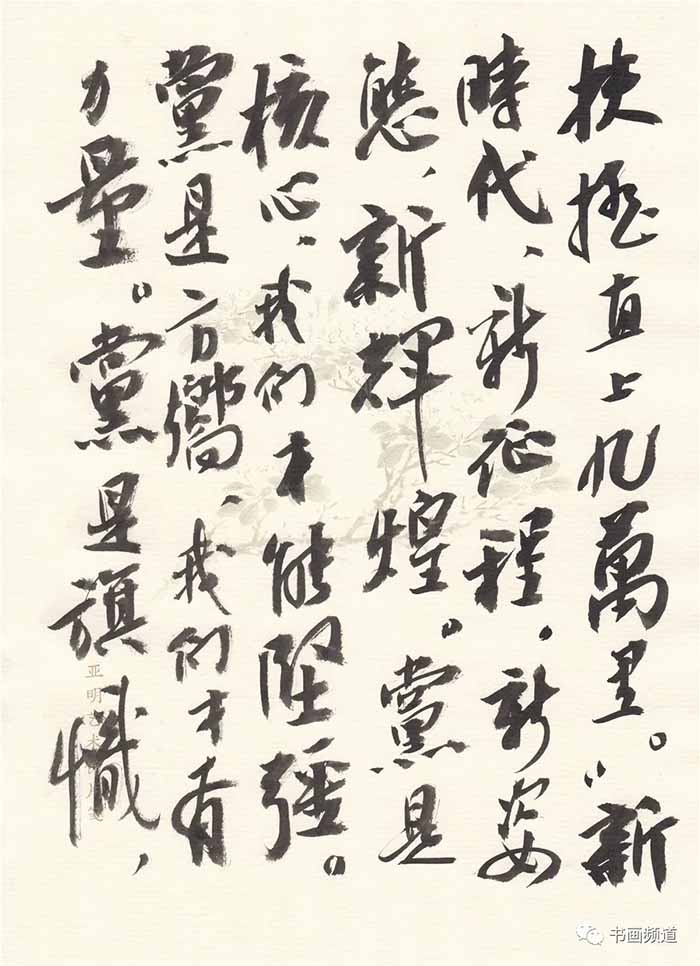 扶摇直上九萬里。”新
時代、新征程,新姿
態、新輝煌。黨是
核心、我们才能堅彊。
黨是方嚮、我们才有
力量。黨是旗幟,
亚明艺术
书画频道